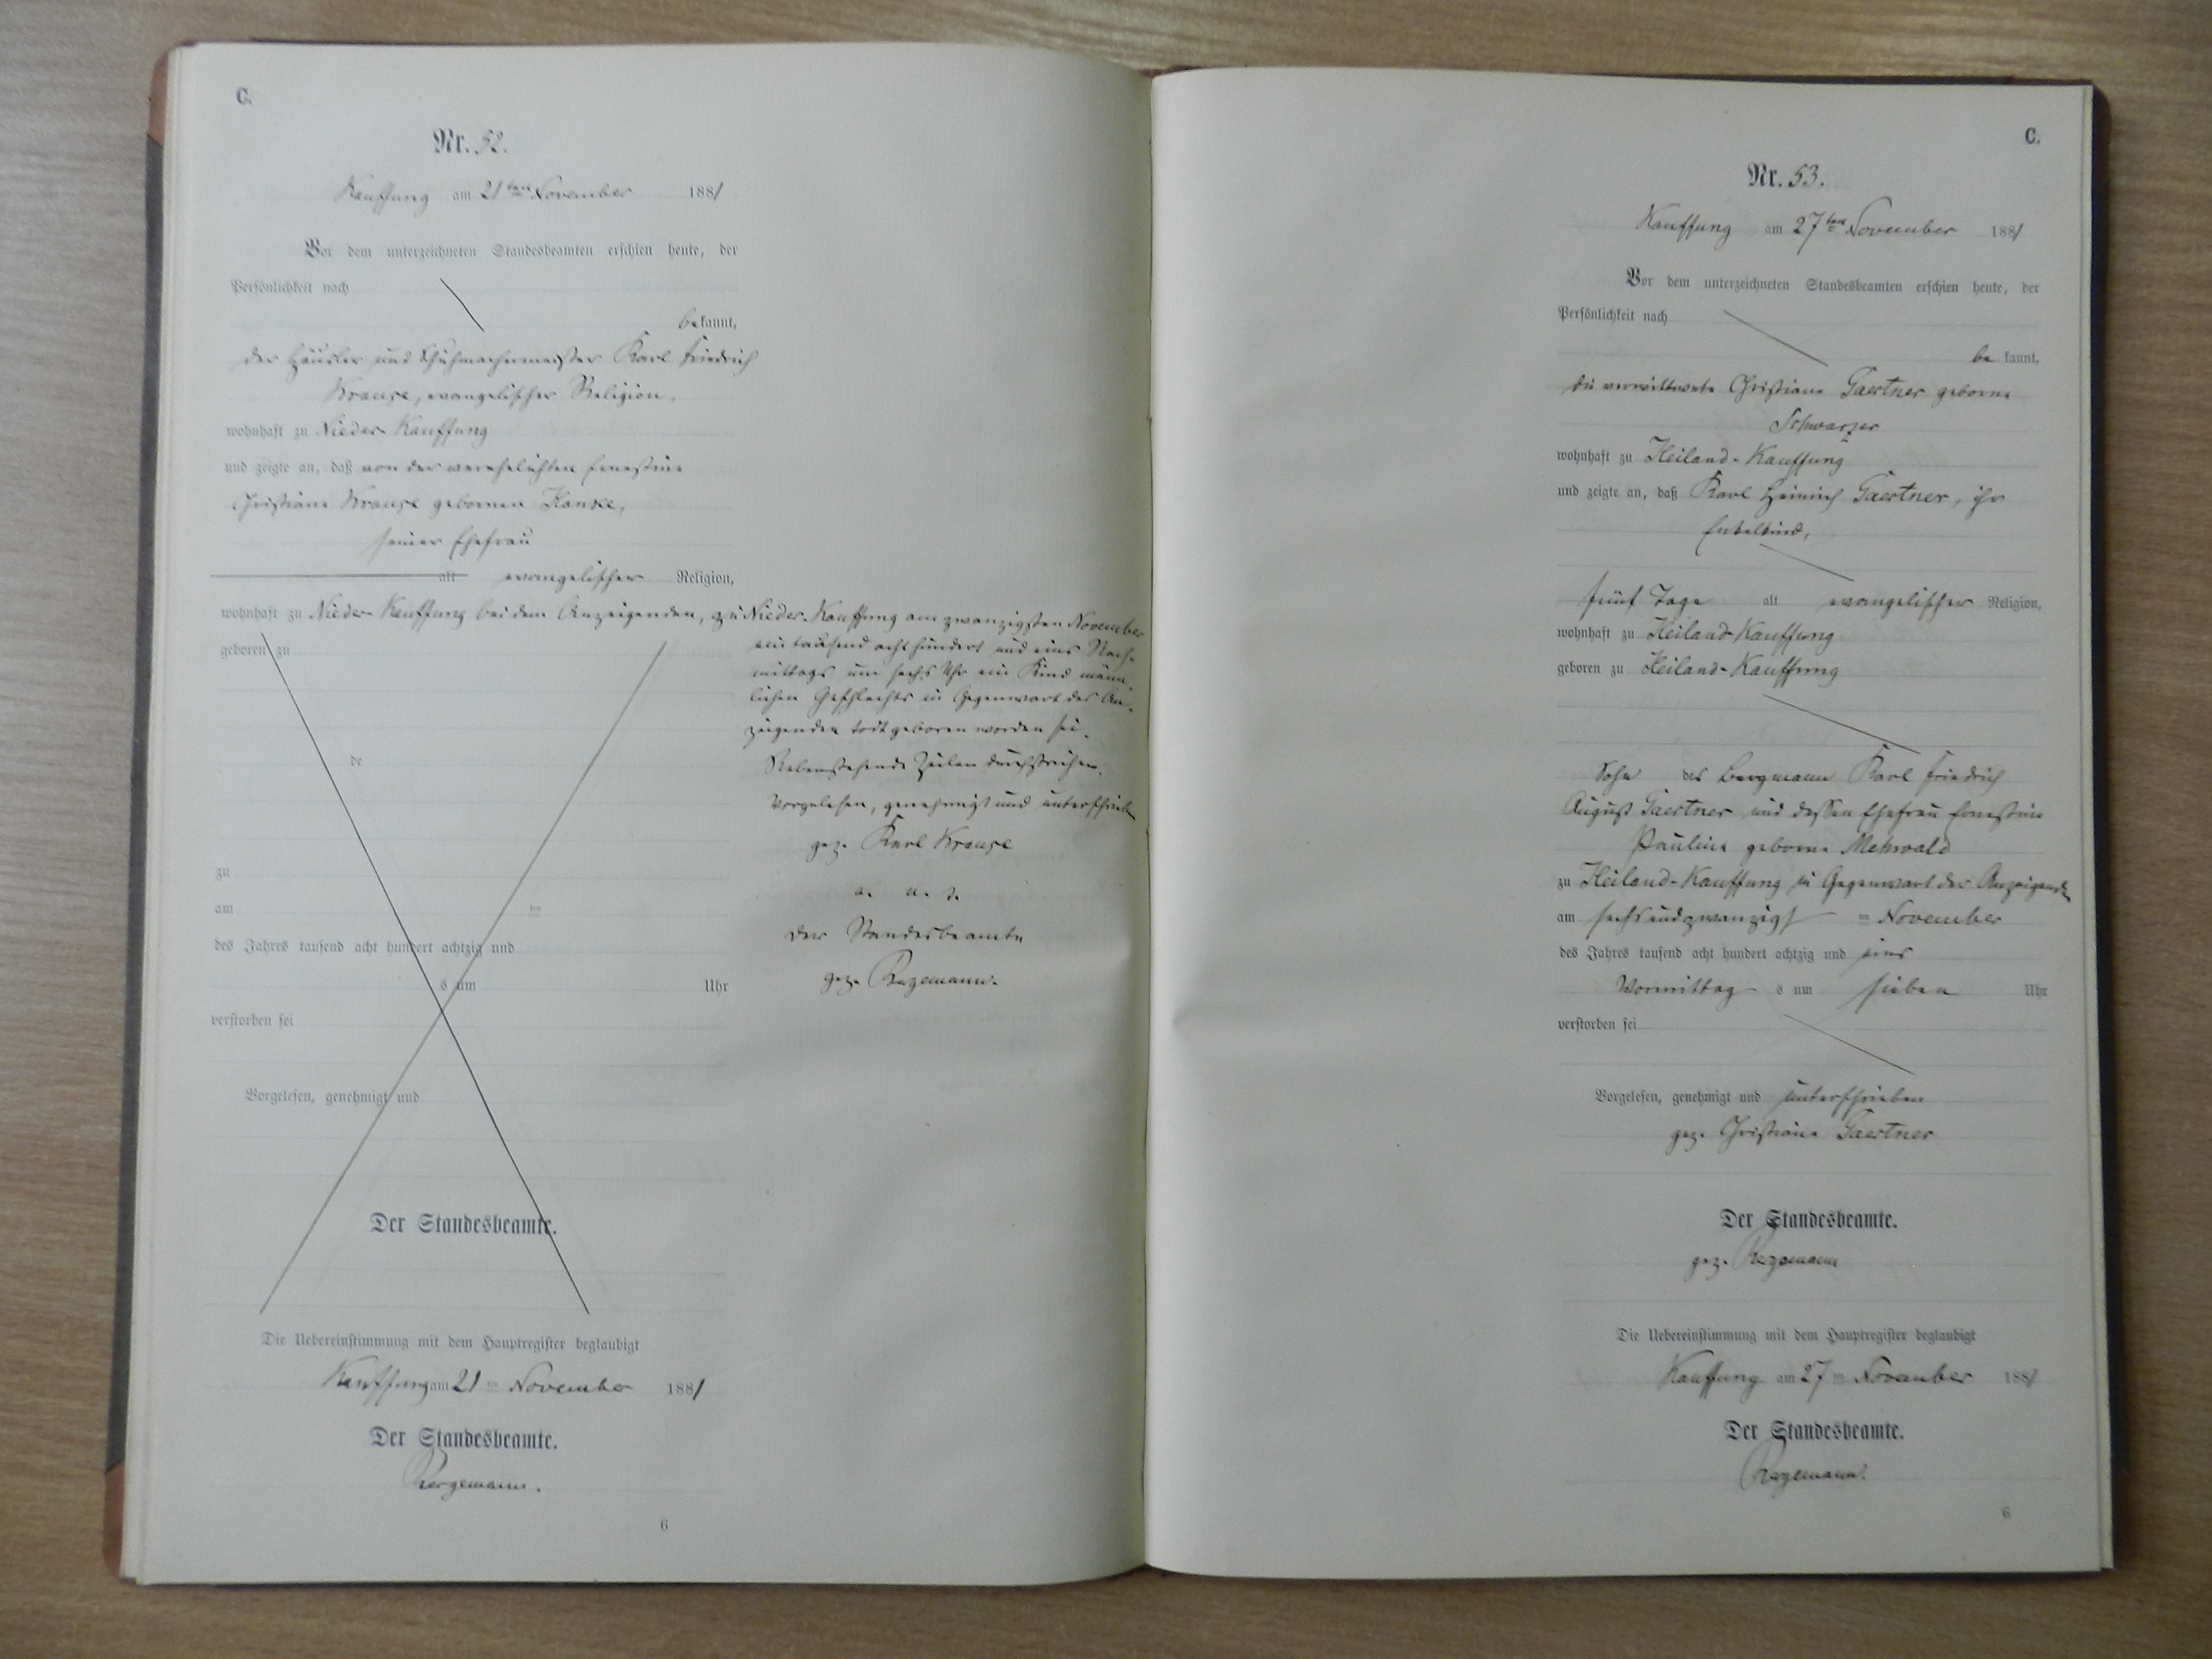 C.
Nr. 52.
Kauffung am 21ten November 1881
Vor dem unterzeichneten Standesbeamten erschien heute, der
Persönlichkeit nach
bekannt,
der Häusler und Schuhmachermeister Karl Friedrich
Krause, evangelischer Religion,
wohnhaft zu Nieder-Kauffung
und zeigte an, daß von der verehelichten Ernestine
Christiane Krause gebornen Hanke,
seiner Ehefrau
alt evangelischer Religion,
wohnhaft zu Nieder-Kauffung bei dem Anzeigenden, zu Nieder-Kauffung am zwanzigsten November
geboren zu
ein tausend acht hundert und eins Nach-
mittags um sechs Uhr ein Kind männ-
lichen Geschlechts in Gegenwart des An-
zeigenden todtgeboren worden sei.
Nebenstehende Zeilen durchstrichen.
Vorgelesen, genehmigt und unterschrieben
gez. Karl Krause
a. u. s.
Der Standesbeamte
gez.
de
zu
am ten
des Jahres tausend acht hundert achtzig und
s um Uhr
verstorben sei
Vorgelesen, genehmigt und
Der Standesbeamte.
Die Uebereinstimmung mit dem Hauptregister beglaubigt
Kauffung am 21 ten November 1881
Der Standesbeamte.
6
C.
Nr. 53.
Kauffung am 27ten November 1881
Vor dem unterzeichneten Standesbeamten erschien heute, der
Persönlichkeit nach
be kannt,
die verwittwete Christiane Gaertner geborne
Schwarzer
wohnhaft zu Heiland-Kauffung
und zeigte an, daß Karl Heinrich Gaertner, ihr
Enkelkind,
fünf Tage alt evangelischer Religion,
wohnhaft zu Heiland-Kauffung
geboren zu Heiland-Kauffung
Sohn des Bergmann Karl Friedrich
August Gaertner und dessen Ehefrau Ernestine
Pauline geborne Mehwald
zu Heiland-Kauffung in Gegenwart der Anzeigende
am sechsundzwanzigst ten November
des Jahres tausend acht hundert achtzig und eins
Vormittag s um sieben Uhr
verstorben sei
Vorgelesen, genehmigt und unterschrieben
gez. Christiane Gaertner
Der Standesbeamte.
gez.
Die Uebereinstimmung mit dem Hauptregister beglaubigt
Kauffung am 27 ten November 1881
Der Standesbeamte.
6